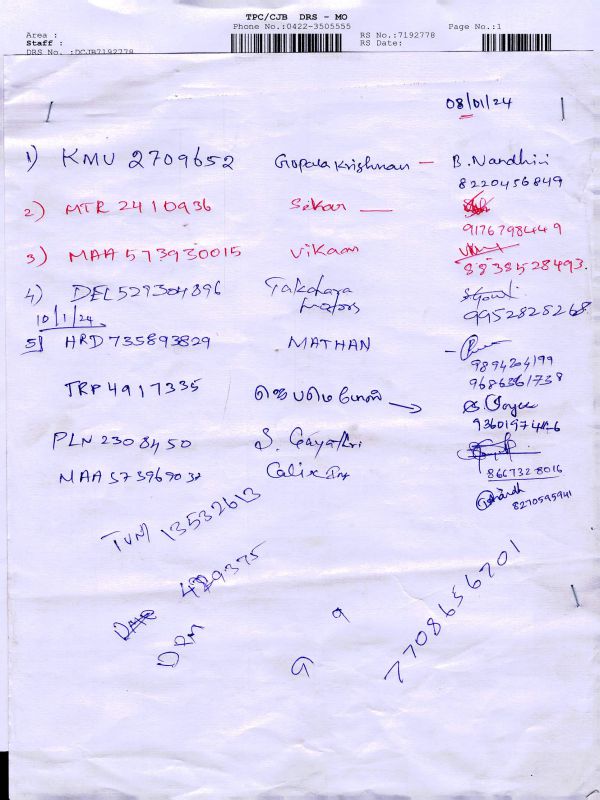 TPC/CJB DRS - MO
Phone No.:0422-3505555
Page No.:1
Area :
Staff :
DRS No. :DCJB7192778
RS No.:7192778
RS Date:
08/01/24
1) KMU 2709652 Gopalakrishnan — B. Nandhini
8220456849
2) MTR 2410936 Sekar —
9176798449
3) MAA 573930015 Vikaam
8838528493.
4) DEL 529304896 Takahara Motors
9952825268
10/1/24
5) HRD 735893829 MATHAN
9894204199
9686361738
TRP 4917335 ஜெபமெ
PLN 2308450 S. Gayathri
8667328016
MAA 573969032 Calix
8270595941
TUM 13532613
DPM
G 9
7708656701